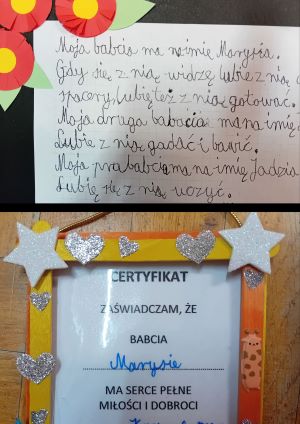 Moja babcia ma na imię Marysia.
Gdy się z nią widzę lubię z nią
spacery, lubię też z nią gotować.
Moja druga babcia ma na imię
Lubię z nią gadać i bawić.
Moja prababcia ma na imię Jadzia
Lubię się z nią uczyć.
CERTYFIKAT
ZAŚWIADCZAM, ŻE
BABCIA
Marysie
MA SERCE PEŁNE
MIŁOŚCI I DOBROCI